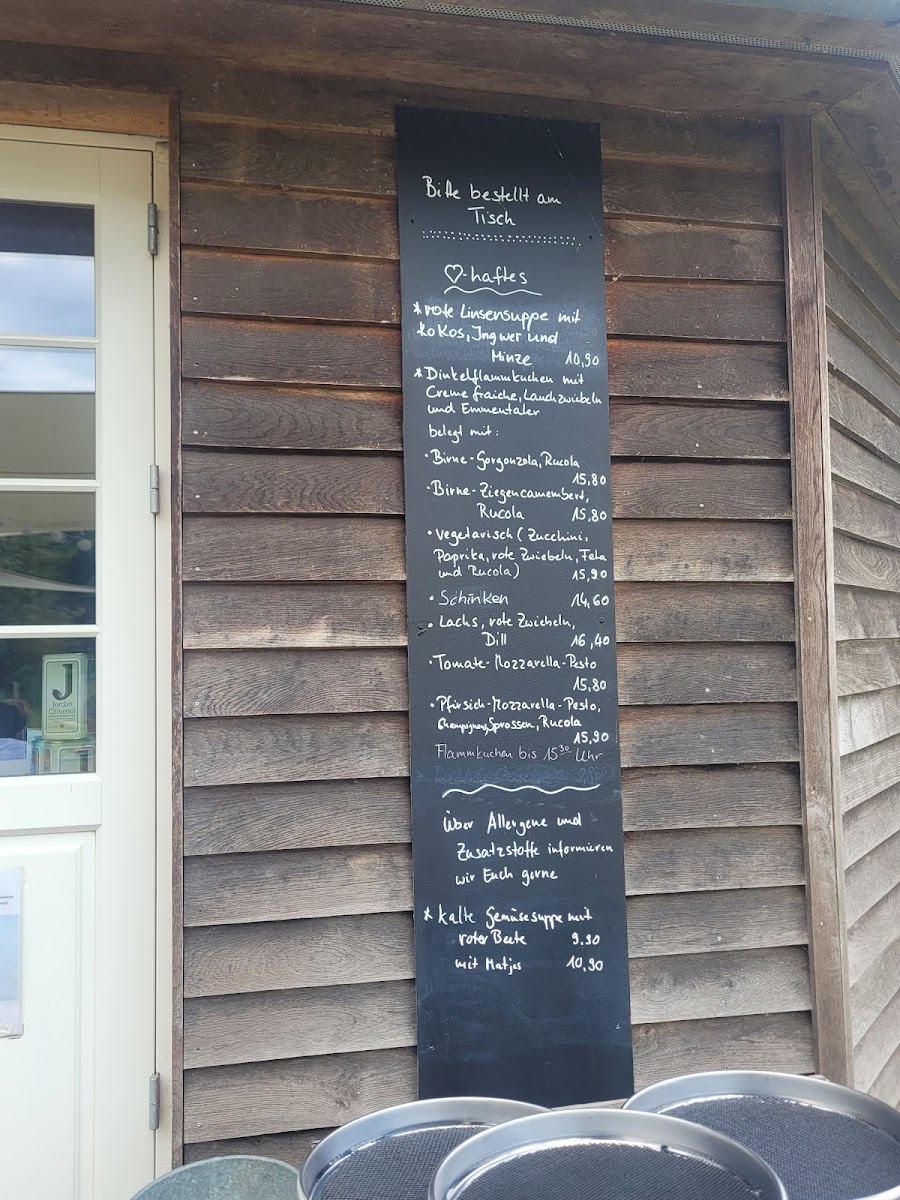 Bitte bestellt am
Tisch
♡-haftes
* rote Linsensuppe mit
Kokos, Ingwer und
Minze 10,90
* Dinkelflammkuchen mit
Creme fraiche, Lauchzwiebeln
und Emmentaler
belegt mit:
• Birne-Gorgonzola, Rucola
15,80
• Birne-Ziegencamembert,
Rucola 15,80
• vegetarisch (Zucchini,
Paprika, rote Zwiebeln, Feta
und Rucola) 15,90
• Schinken 14,60
• Lachs, rote Zwiebeln,
Dill 16,40
• Tomate-Mozzarella-Pesto
15,80
• Pfirsich-Mozzarella-Pesto,
Champignons, Sprossen, Rucola
15,90
Flammkuchen bis 15³⁰ Uhr
Über Allergene und
Zusatzstoffe informieren
wir Euch gerne
* kalte Gemüsesuppe mit
roter Beete 9.90
mit Matjes 10,90
J
Jordan
Olivenöl